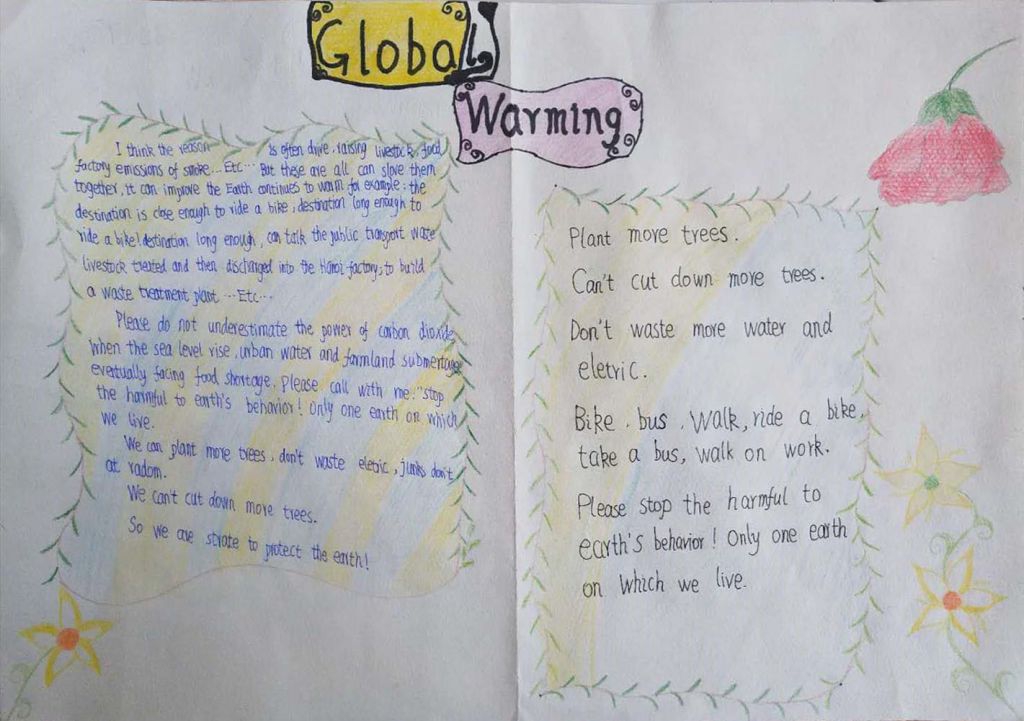 Global
Warming
I think the reason is often drive, raising livestock, food
factory emissions of smoke...Etc... But these are all can slove them
together, it can improve the Earth continues to warm for example: the
destination is close enough to ride a bike, destination long enough to
ride a bike! destination long enough, can talk the public transport waste
livestock treated and then discharged into the factory; to build
a waste treatment plant ...Etc...
Please do not underestimate the power of carbon dioxide,
when the sea level rise, urban water and farmland submerbage
eventually facing food shortage. Please call with me: "stop
the harmful to earth's behavior! Only one earth on which
we live.
We can plant more trees, don't waste eletric, junks don't
at radom.
We can't cut down more trees.
So we are strate to protect the earth!
Plant more trees.
Can't cut down more trees.
Don't waste more water and
eletric.
Bike, bus, walk, ride a bike,
take a bus, walk on work.
Please stop the harmful to
earth's behavior! Only one earth
on which we live.